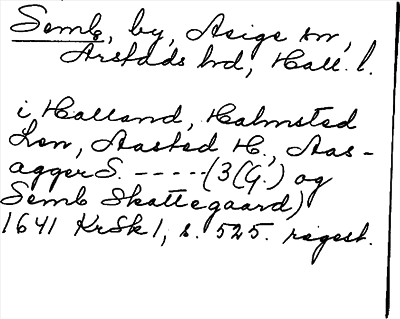 Semb, by, Asige sn,
Årstads hd, Hall. l.
i Halland, Halmsted
Len, Aasted H., Aas-
agger S. ----- (3 (G.) og
Semb Skattegaard)
1641 KrSk 1, s. 525. regest.